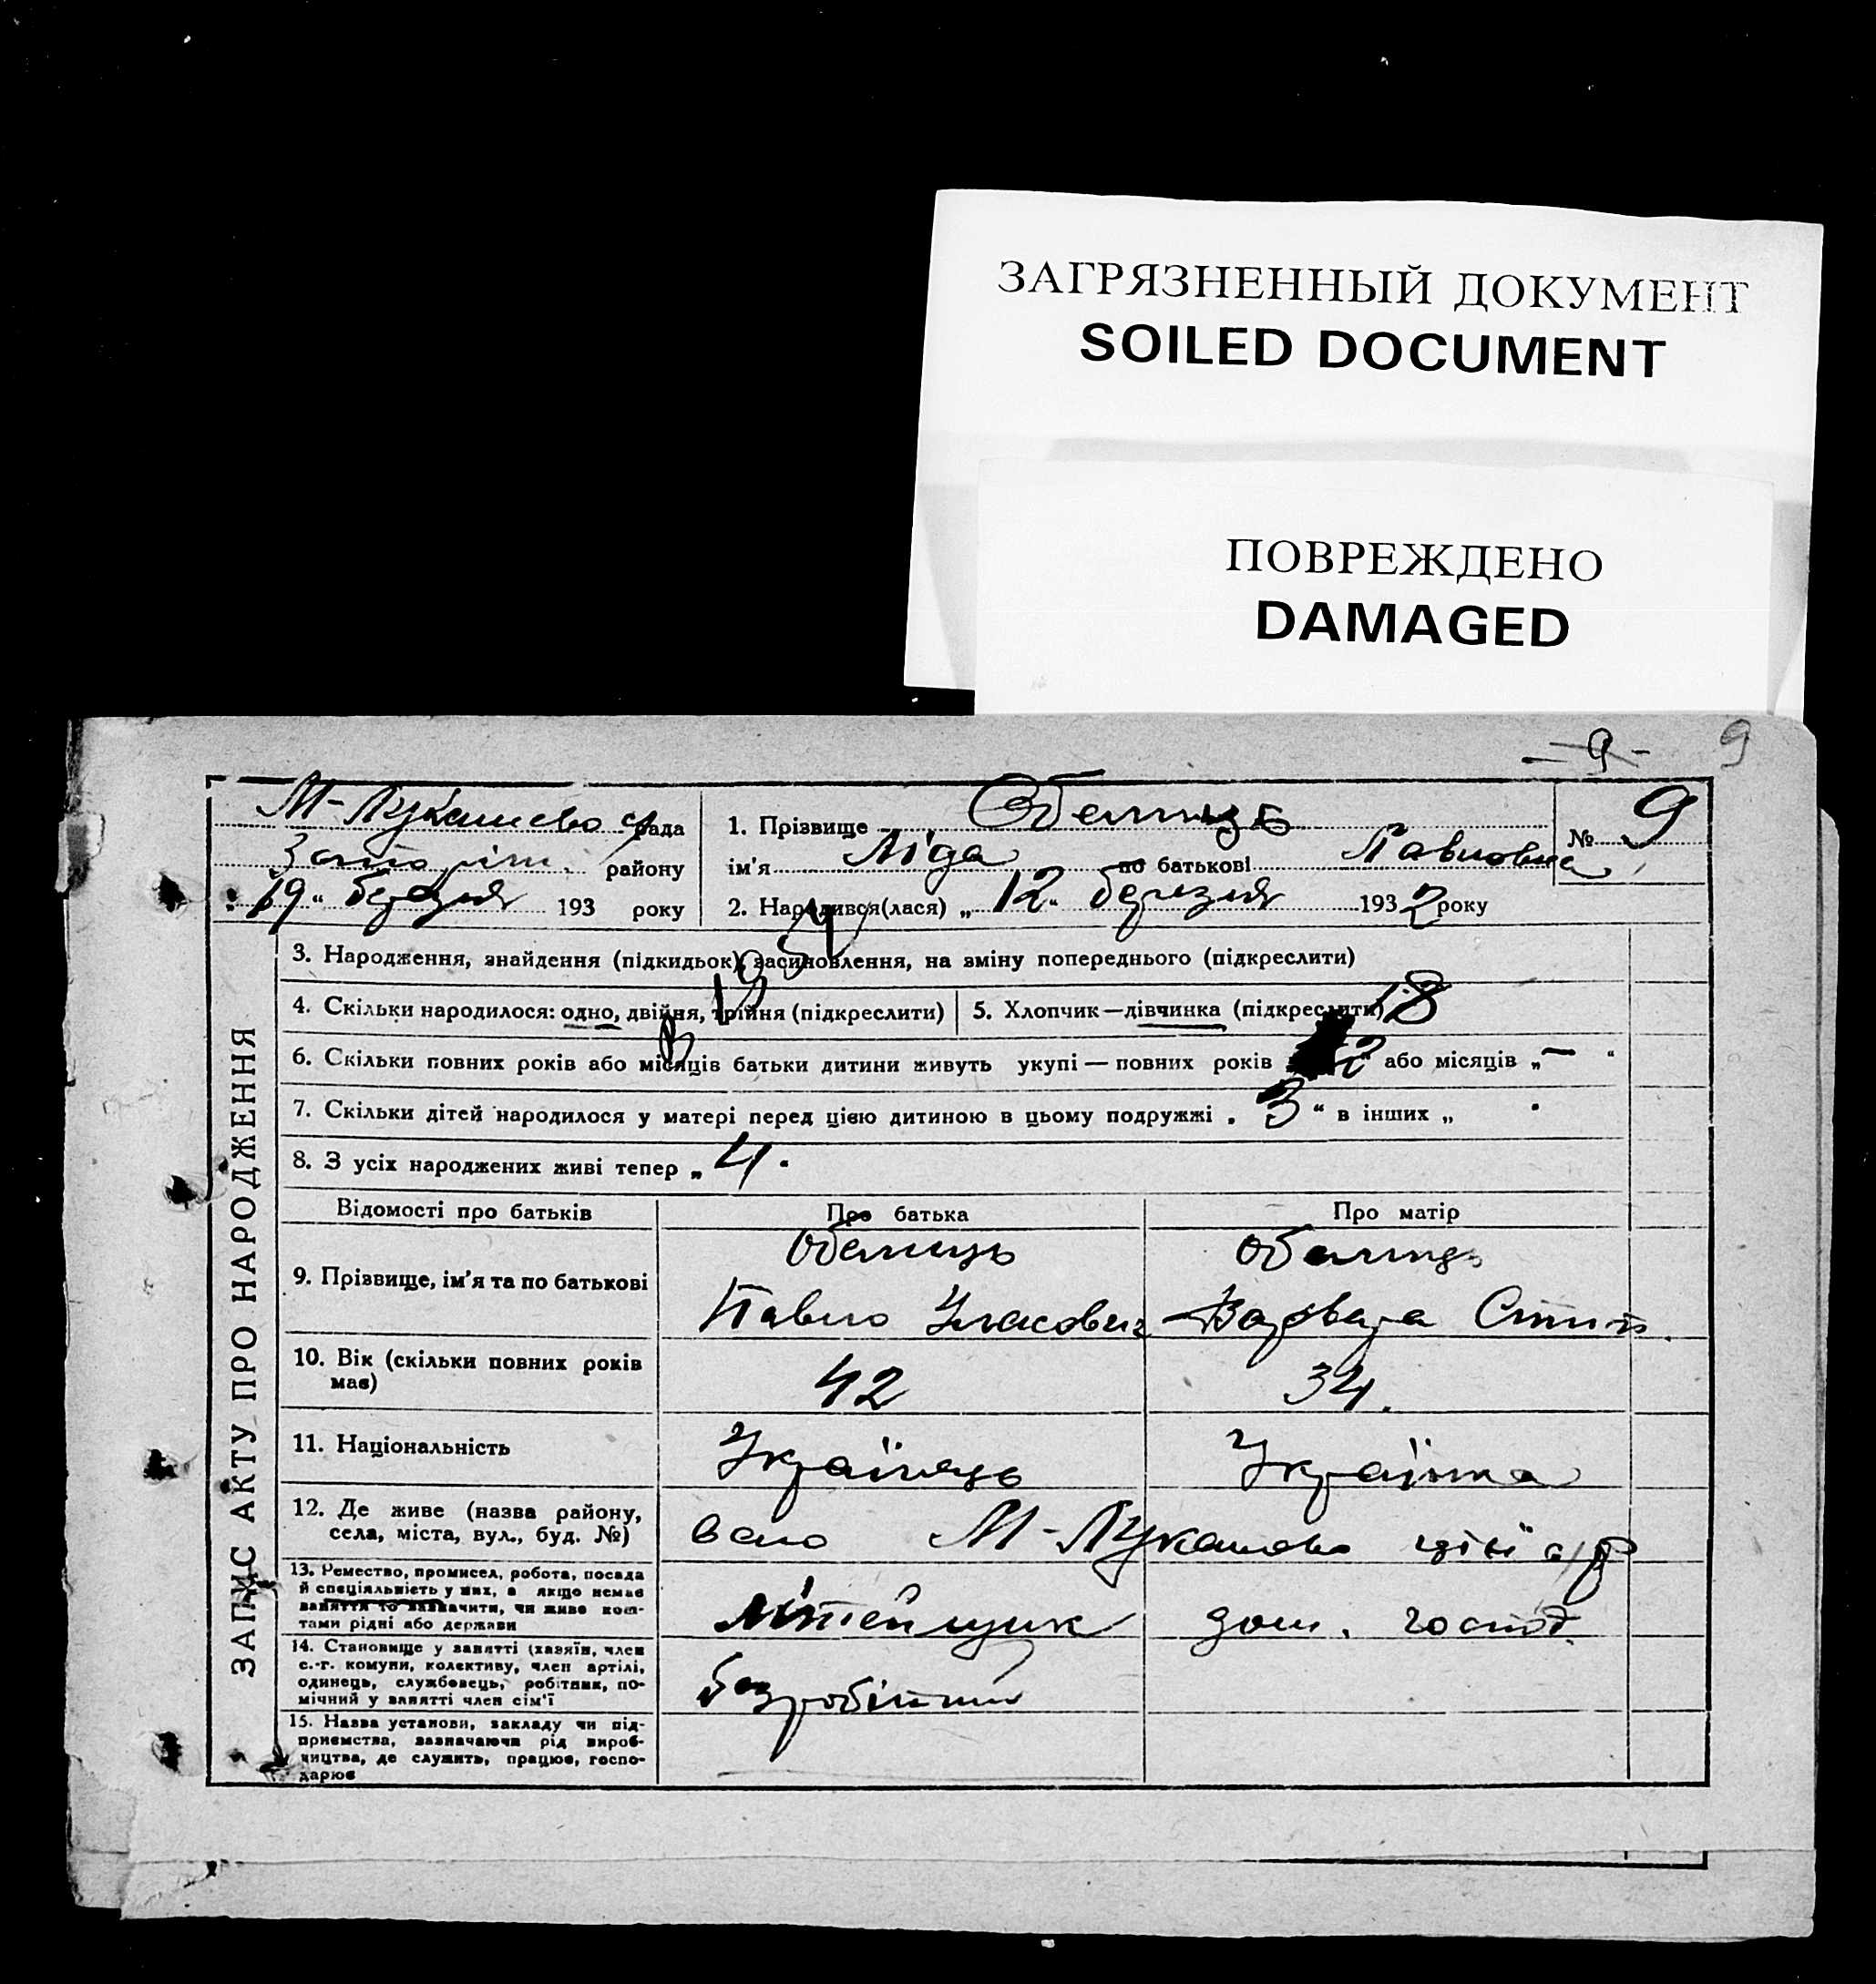 ЗАГРЯЗНЕННЫЙ ДОКУМЕНТ
SOILED DOCUMENT
ПОВРЕЖДЕНО
DAMAGED
- 9 - 9
ЗАПИС АКТУ ПРО НАРОДЖЕННЯ
М-Лукашево с/рада
району
"19" березня 193 року
1. Прізвище
№ 9
ім'я Ліда по батькові Павловна
2. Народився(лася) „12" березня 1932 року
3. Народження, знайдення (підкидьок), засиновлення, на зміну попереднього (підкреслити)
4. Скільки народилося: одно, двійня, трійня (підкреслити)
5. Хлопчик—дівчинка (підкреслити)
18
6. Скільки повних років або місяців батьки дитини живуть укупі — повних років або місяців „—"
7. Скільки дітей народилося у матері перед цією дитиною в цьому подружжі „3" в інших „
8. З усіх народжених живі тепер „4"
Відомості про батьків Про батька Про матір
9. Прізвище, ім'я та по батькові
Павло Власович Варвара
10. Вік (скільки повних років має) 42 34.
11. Національність Українець Українка
12. Де живе (назва району, села, міста, вул., буд. №) село М-Лукашово цієї с/р
13. Ремество, промисел, робота, посада й спеціяльність у них, а якщо немає заняття то зазначити, чи живе коштами рідні або держави
літейщик дом. господ.
14. Становище у занятті (хазяїн, член с.-г. комуни, колективу, член артілі, одинець, службовець, робітник, помічний у занятті член сім'ї
безробітний
15. Назва установи, закладу чи підприємства, зазначаючи рід виробництва, де служить, працює, господарює